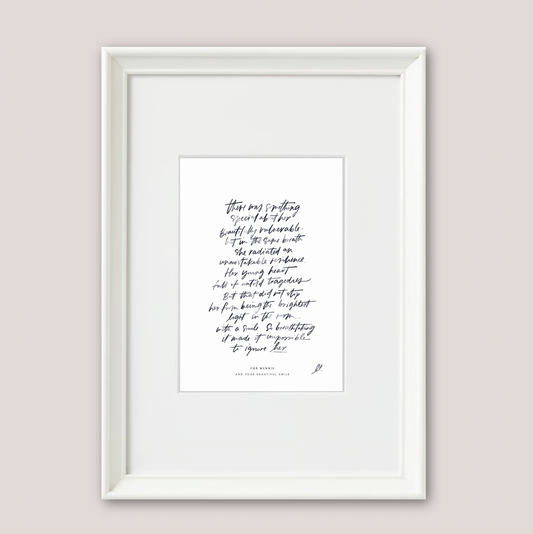 there was something
special about her
beautifully vulnerable.
but in the same breath
she radiated an
unmistakable resilience
Her young heart
full of untold tragedies
But that did not stop
her from being the brightest
light in the room...
with a smile so breathtaking
it made it impossible
to ignore her
AND YOUR BEAUTIFUL SMILE